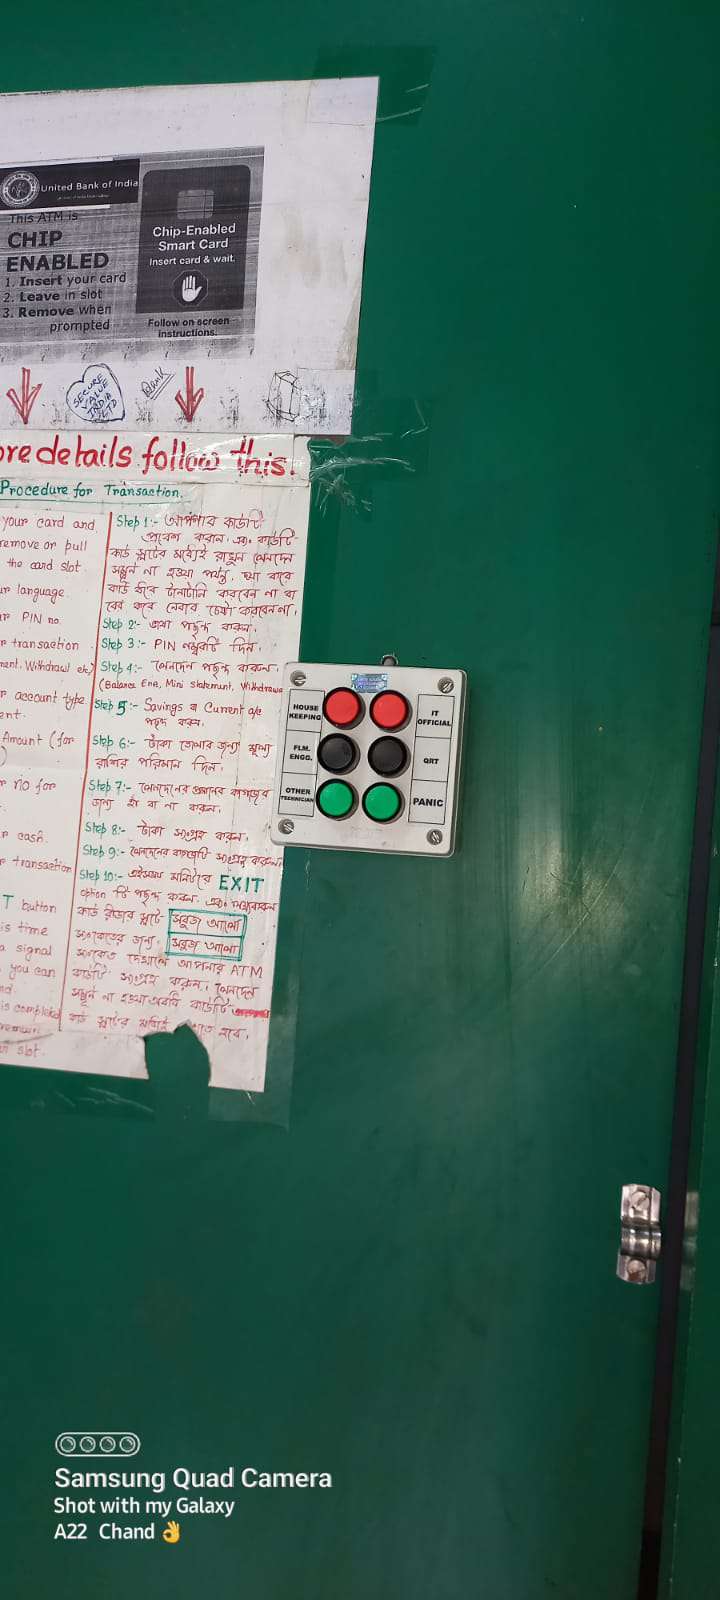 United Bank of India
This ATM is
CHIP
ENABLED
1. Insert your card
2. Leave in slot
3. Remove when
prompted
Chip-Enabled
Smart Card
Insert card & wait.
Follow on screen
instructions.
SECURE
VALUE
INDIA
LTD
Bank
details follow this.
Procedure for Transaction.
your card and
remove or pull
the card slot.
language.
PIN no.
transaction
Withdrawl etc)
account type
Amount (for
no for
cash.
transaction
T button
is time
a signal
you can
is completed
slot.
Step 1:- আপনার কার্ডটি
প্রবেশ করান. এবং কার্ডটি
কার্ড স্লটের মধ্যেই রাখুন লেনদেন
সম্পূর্ন না হওয়া পর্যন্ত.
কার্ড ধরে টানাটানি করবেন না বা
বের করে নেবার চেষ্টা করবেন না.
Step 2:- ভাষা পছন্দ করুন.
Step 3:- PIN নম্বরটি দিন.
Step 4:- লেনদেন পছন্দ করুন.
(Balance Enq, Mini statement, Withdrawa
Step 5:- Savings বা Current a/c
পছন্দ করুন.
Step 6:- টাকা তোলার জন্য মূল্য
রাশির পরিমান দিন.
Step 7:- লেনদেনের প্রমানের কাগজের
জন্য হ্যাঁ বা না করুন.
Step 8:- টাকা সংগ্রহ করুন.
Step 9:- লেনদেনের কাগজটি সংগ্রহ করুন.
Step 10:- এইসময় মনিটরে EXIT
option টি পছন্দ করুন. এবং
কার্ড রিডার স্লটে সবুজ আলো
সংকেতের জন্য. সবুজ আলো
সংকেত দেখালে আপনার ATM
কার্ডটি সংগ্রহ করুন. লেনদেন
সম্পূর্ন না হওয়া অবধি কার্ডটি
কার্ড স্লটের মধ্যেই হবে.
HOUSE
KEEPING
IT
OFFICIAL
FLM.
ENGG.
QRT
OTHER
TECHNICIAN
PANIC
Samsung Quad Camera
Shot with my Galaxy
A22 Chand 👌